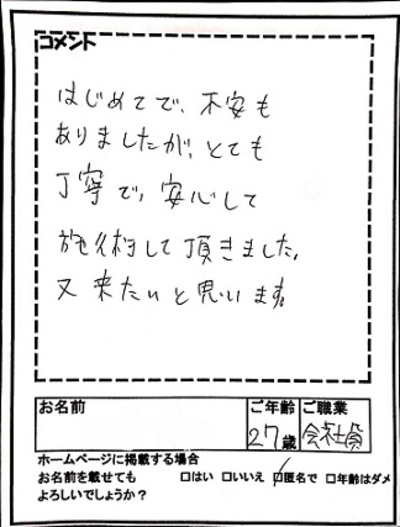 コメント
はじめてで、不安も
ありましたが、とても
丁寧で、安心して
施術して頂きました。
又来たいと思います。
お名前 ご年齢 ご職業
27歳 会社員
ホームページに掲載する場合
お名前を載せても □はい □いいえ ☑匿名で □年齢はダメ
よろしいでしょうか？